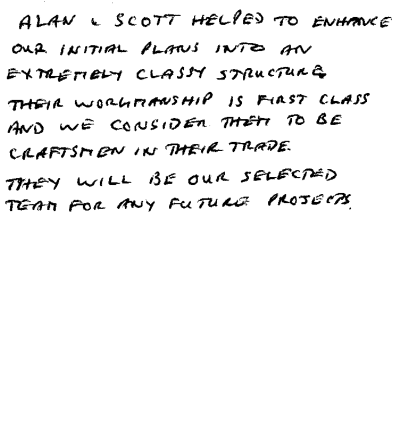 ALAN & SCOTT HELPED TO ENHANCE
OUR INITIAL PLANS INTO AN
EXTREMELY CLASSY STRUCTURE
THEIR WORKMANSHIP IS FIRST CLASS
AND WE CONSIDER THEM TO BE
CRAFTSMEN IN THEIR TRADE.
THEY WILL BE OUR SELECTED
TEAM FOR ANY FUTURE PROJECTS.